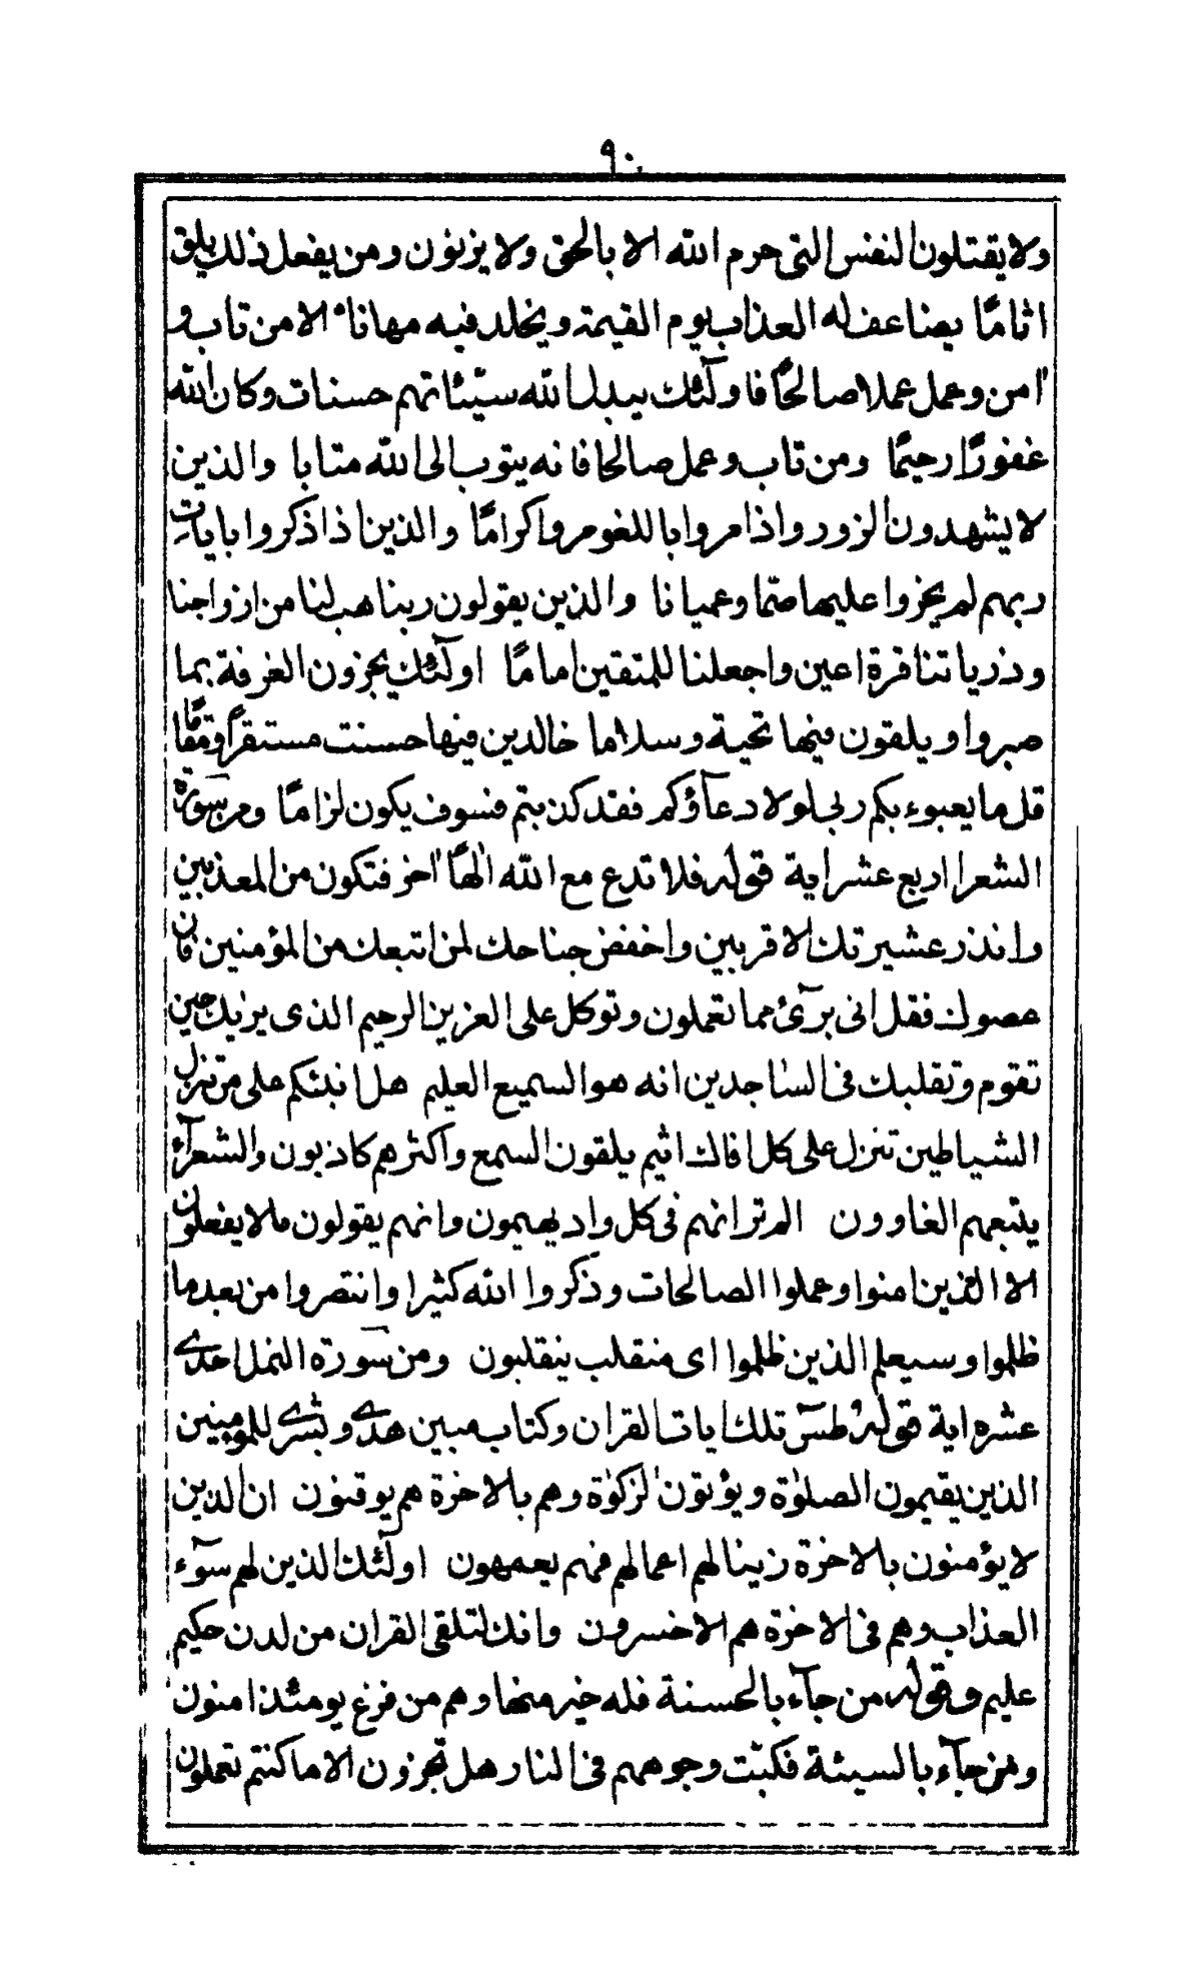 ٩٠
ولا يقتلون النفس التي حرم الله الا بالحق ولا يزنون ومن يفعل ذلك يلق
اثامًا يضاعف له العذاب يوم القيمة ويخلد فيه مهانا الا من تاب و
اٰمن وعمل عملا صالحًا فاولٓئك يبدل الله سيّئاتهم حسنات وكان الله
غفورًا رحيمًا ومن تاب وعمل صالحا فانه يتوب الى الله متابا والذين
لا يشهدون الزور واذا مروا باللغو مروا كرامًا والذين اذا ذكروا بايات
ربهم لم يخروا عليها صمّا وعميانا والذين يقولون ربنا هب لنا من ازواجنا
وذرياتنا قرة اعين واجعلنا للمتقين امامًا اولٓئك يجزون الغرفة بما
صبروا ويلقون فيها تحية وسلاما خالدين فيها حسنت مستقرًا ومقامًا
قل ما يعبوء بكم ربى لولا دعآؤكم فقد كذبتم فسوف يكون لزامًا ومن سورة
الشعرا اربع عشر اية قوله فلا تدع مع الله الٰهًا اٰخر فتكون من المعذبين
وانذر عشيرتك الاقربين واخفض جناحك لمن اتبعك من المؤمنين فان
عصوك فقل انى برآئ مما تعملون وتوكل على العزيز الرحيم الذى يريك حين
تقوم وتقلبك فى الساجدين انه هو السميع العليم هل انبئكم على من تنزل
الشياطين تنزل على كل افاك اثيم يلقون السمع واكثرهم كاذبون والشعرآء
يتبعهم الغاوون الم تر انهم فى كل واد يهيمون وانهم يقولون ما لا يفعلون
الا الذين امنوا وعملوا الصالحات وذكروا الله كثيرا وانتصروا من بعد ما
ظلموا وسيعلم الذين ظلموا اى منقلب ينقلبون ومن سورة النمل احدى
عشره اية قوله طسٓ تلك ايات القران وكتاب مبين هدى وبشرى للمومنين
الذين يقيمون الصلوٰة ويؤتون الزكوٰة وهم بالاخرة هم يوقنون ان الذين
لا يؤمنون بالاخرة زينا لهم اعمالهم فهم يعمهون اولٓئك الذين لهم سوٓء
العذاب وهم فى الاخرة هم الاخسرون وانك لتلقى القران من لدن حكيم
عليم وقوله من جآء بالحسنة فله خير منها وهم من فزع يومئذ امنون
ومن جآء بالسيئة فكبّت وجوههم فى النار هل تجزون الا ما كنتم تعملون